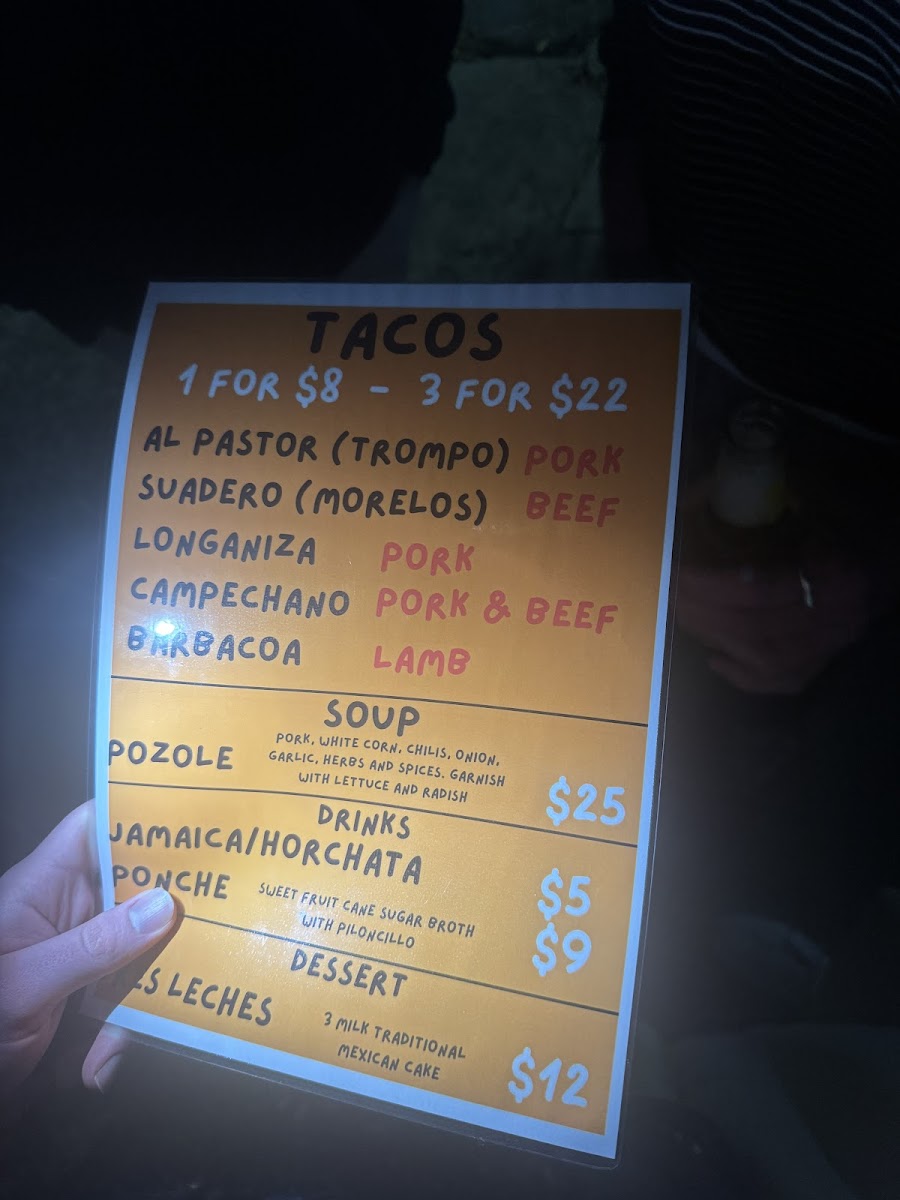 TACOS
1 FOR $8 - 3 FOR $22
AL PASTOR (TROMPO) PORK
SUADERO (MORELOS) BEEF
LONGANIZA PORK
CAMPECHANO PORK & BEEF
BARBACOA LAMB
SOUP
POZOLE
PORK, WHITE CORN, CHILIS, ONION,
GARLIC, HERBS AND SPICES. GARNISH
WITH LETTUCE AND RADISH
$25
DRINKS
JAMAICA/HORCHATA $5
PONCHE
SWEET FRUIT CANE SUGAR BROTH
WITH PILONCILLO
$9
DESSERT
LECHES
3 MILK TRADITIONAL
MEXICAN CAKE
$12